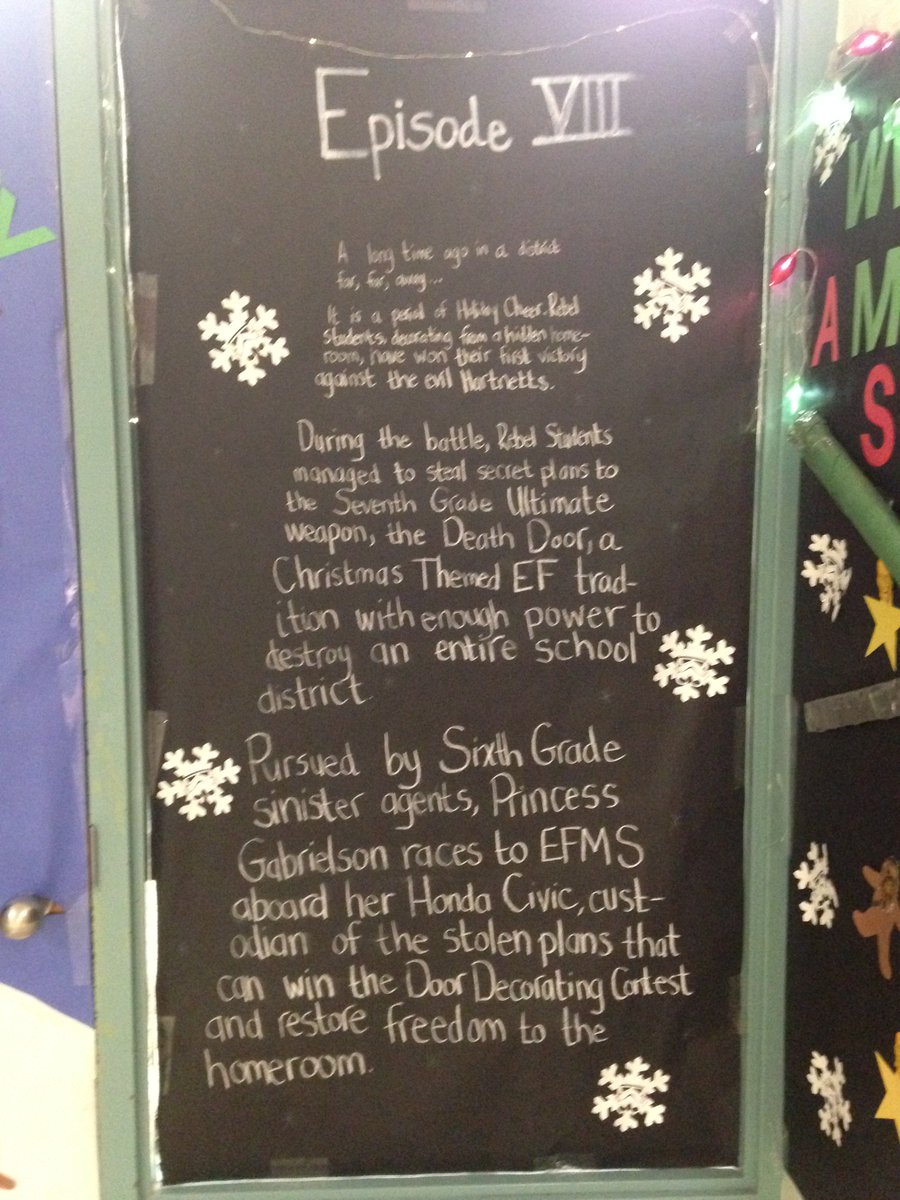 Episode VIII
A long time ago in a district
far, far, away...
It is a period of Holiday Cheer. Rebel
Students, decorating from a hidden home-
room, have won their first victory
against the evil Hartnetts.
During the battle, Rebel Students
managed to steal secret plans to
the Seventh Grade Ultimate
weapon, the Death Door, a
Christmas Themed EF trad-
ition with enough power to
destroy an entire school
district.
Pursued by Sixth Grade
sinister agents, Princess
Gabrielson races to EFMS
aboard her Honda Civic, cust-
odian of the stolen plans that
can win the Door Decorating Contest
and restore freedom to the
homeroom.